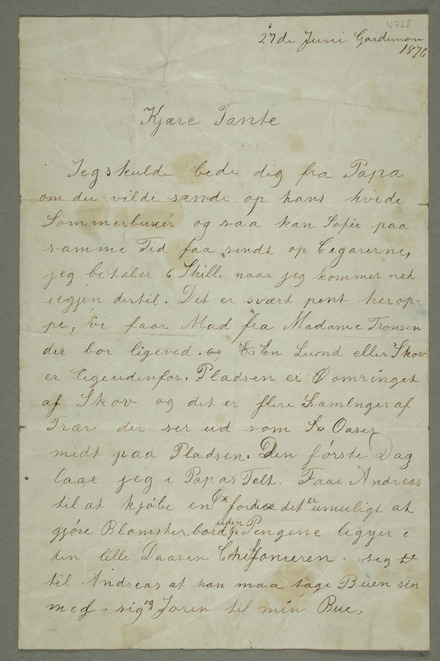 N728
27de Juni Gardemon
1876
Kjære Tante
Jeg skulde bede dig fra Papa
om du vilde sænde op hans hvide
Sommerbuxer og saa kan Sofie paa
samme Tid faa sendt op Cegarerne,
jeg betaler 6 Skill. naar jeg kommer ned
igjen dertil. Det er svært pent herop-
pe, vi faar Mad fra Madame Tronsen
der bor ligeved. En Lund eller Skov
er ligeudenfor. Pladsen er Oomringet
af Skov og det er flere Samlnger af
Trær der ser ud som Oaser
midt paa Pladsen. Den förste Dag
laae jeg i Papas Telt. Faae Andreas
til at kjöbe en fordi det er umuligt at
gjöre Blomsterbord uden Pengene ligger i
den lille Daasen Chifonieren. sig
til Andreas at han maa tage Buen sin
med sig og Joren til min Bue.